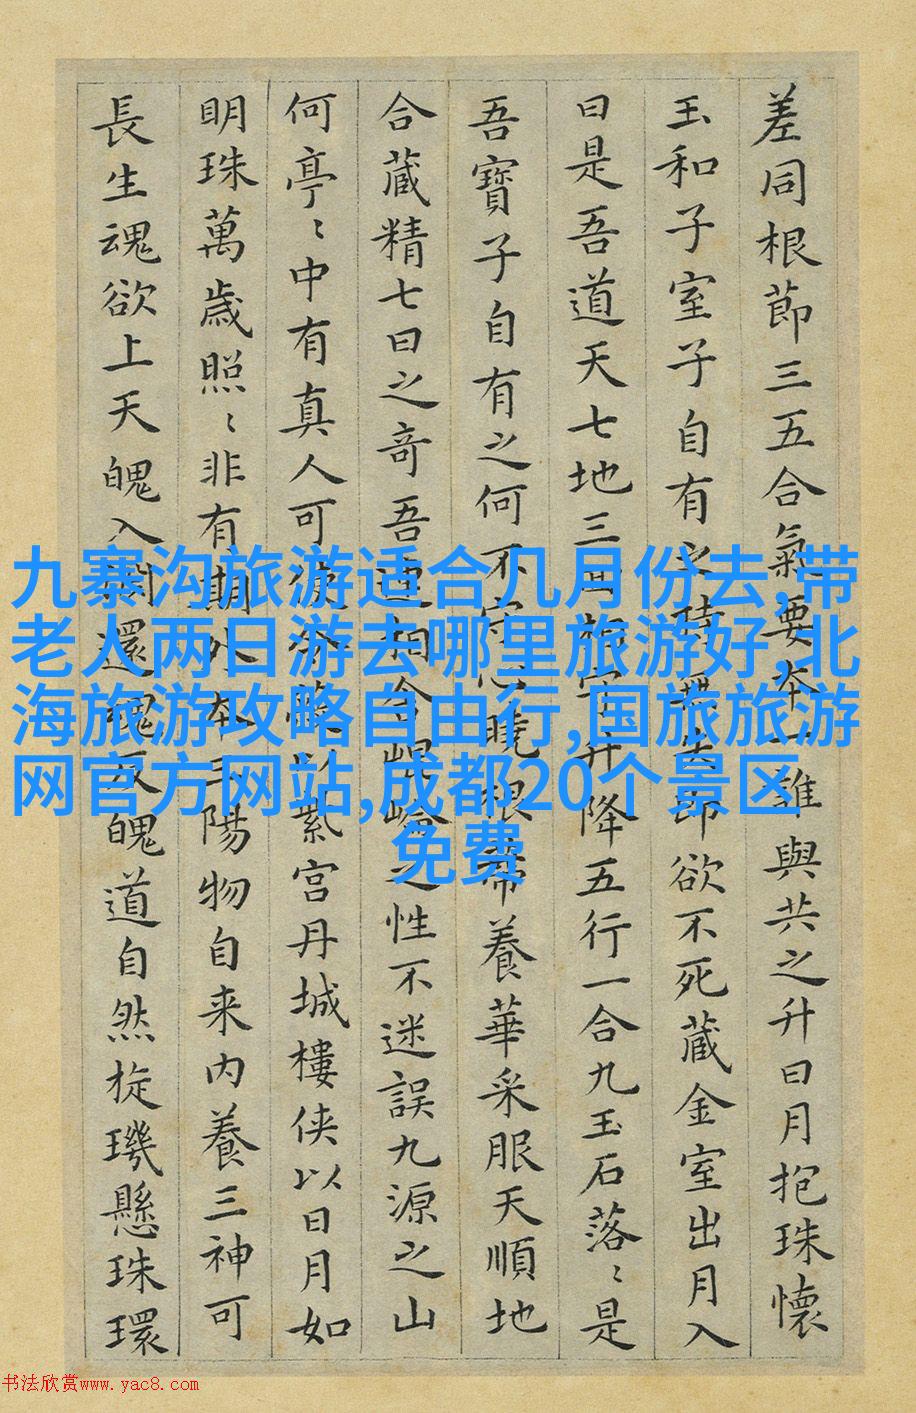 差同根節三五合氣要本一誰與共之升日月抱珠懷
玉和子室子自有之持無失即欲不死藏金室出月入
日是吾道天七地三回相守升降五行一合九玉石落〻是
吾寶子自有之何不守心曉根蒂養華采服天順地
合藏精七日之奇吾連相合崐崘之性不迷誤九源之山
何亭〻中有真人可使令蔽以紫宮丹城樓俠以日月如
明珠萬歲照〻非有期外本三陽物自来内養三神可
長生魂欲上天魄入淵還魂反魄道自然旋璣懸珠環
九寨沟旅游适合几月份去,带
老人两日游去哪里旅游好,北
海旅游攻略自由行,国旅旅游
网官方网站,成都20个景区
免费
书法欣赏www.yac8.com